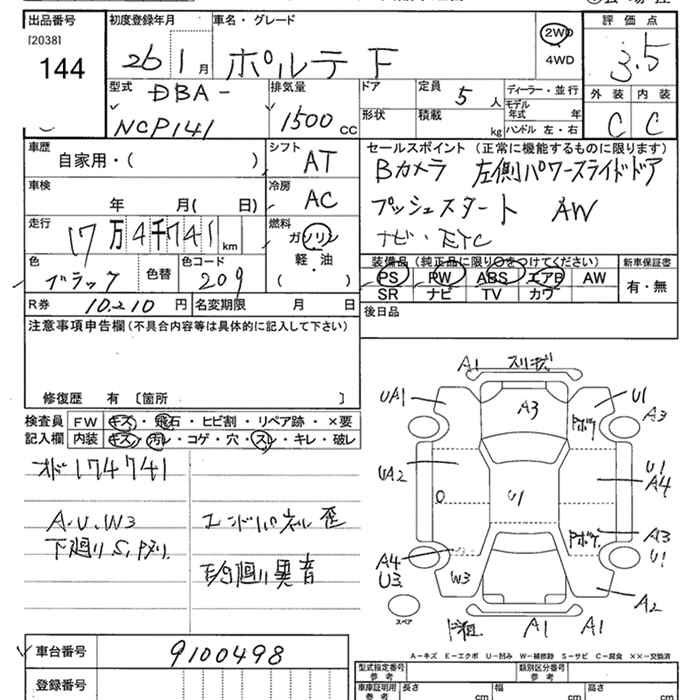 出品番号
[2038]
144
初度登録年月
26 1 月
車名・グレード
ポルテ F
2WD
4WD
評価点
3.5
外装 内装
C C
型式
DBA-
NCP141
排気量
1500 CC
ドア
形状
定員
5 人
積載
kg
ディーラー・並行
モデル年式 年
ハンドル 左・右
車歴
自家用・( )
シフト
AT
セールスポイント (正常に機能するものに限ります)
Bカメラ 左側パワースライドドア
プッシュスタート AW
ナビ・ETC
車検
年 月( 日)
冷房
AC
走行
17万4千741 km
燃料
ガソリン
軽・油
( )
色
ブラック
色替
色コード
209
装備品 (純正品に限り○をつけてください)
PS PW ABS エアB AW
SR ナビ TV カワ
新車保証書
有・無
R券
10,210 円
名変期限 月 日
後日品
注意事項申告欄(不具合内容等は具体的に記入して下さい)
修復歴 有 〔箇所 〕
検査員
記入欄
FW キズ・飛石・ヒビ割・リペア跡・×要
内装 キズ・汚レ・コゲ・穴・スレ・キレ・破レ
オド174741
A.U.W3
下廻りS.
エンドパネル歪
異音
A1
スリキズ
UA1
A3
U1
A3
Pボケ
UA2
U1
U1
A4
Pボケ
A3
U1
A4
U3
W3
A2
A1
A1
スペア
A-キズ E-エクボ U-凹み W-補修跡 S-サビ C-腐食 ××-交換済
車台番号
9100498
登録番号
型式指定番号
参考
類別区分番号
参考
車庫証明用
参考
長さ cm
幅 cm
高さ cm